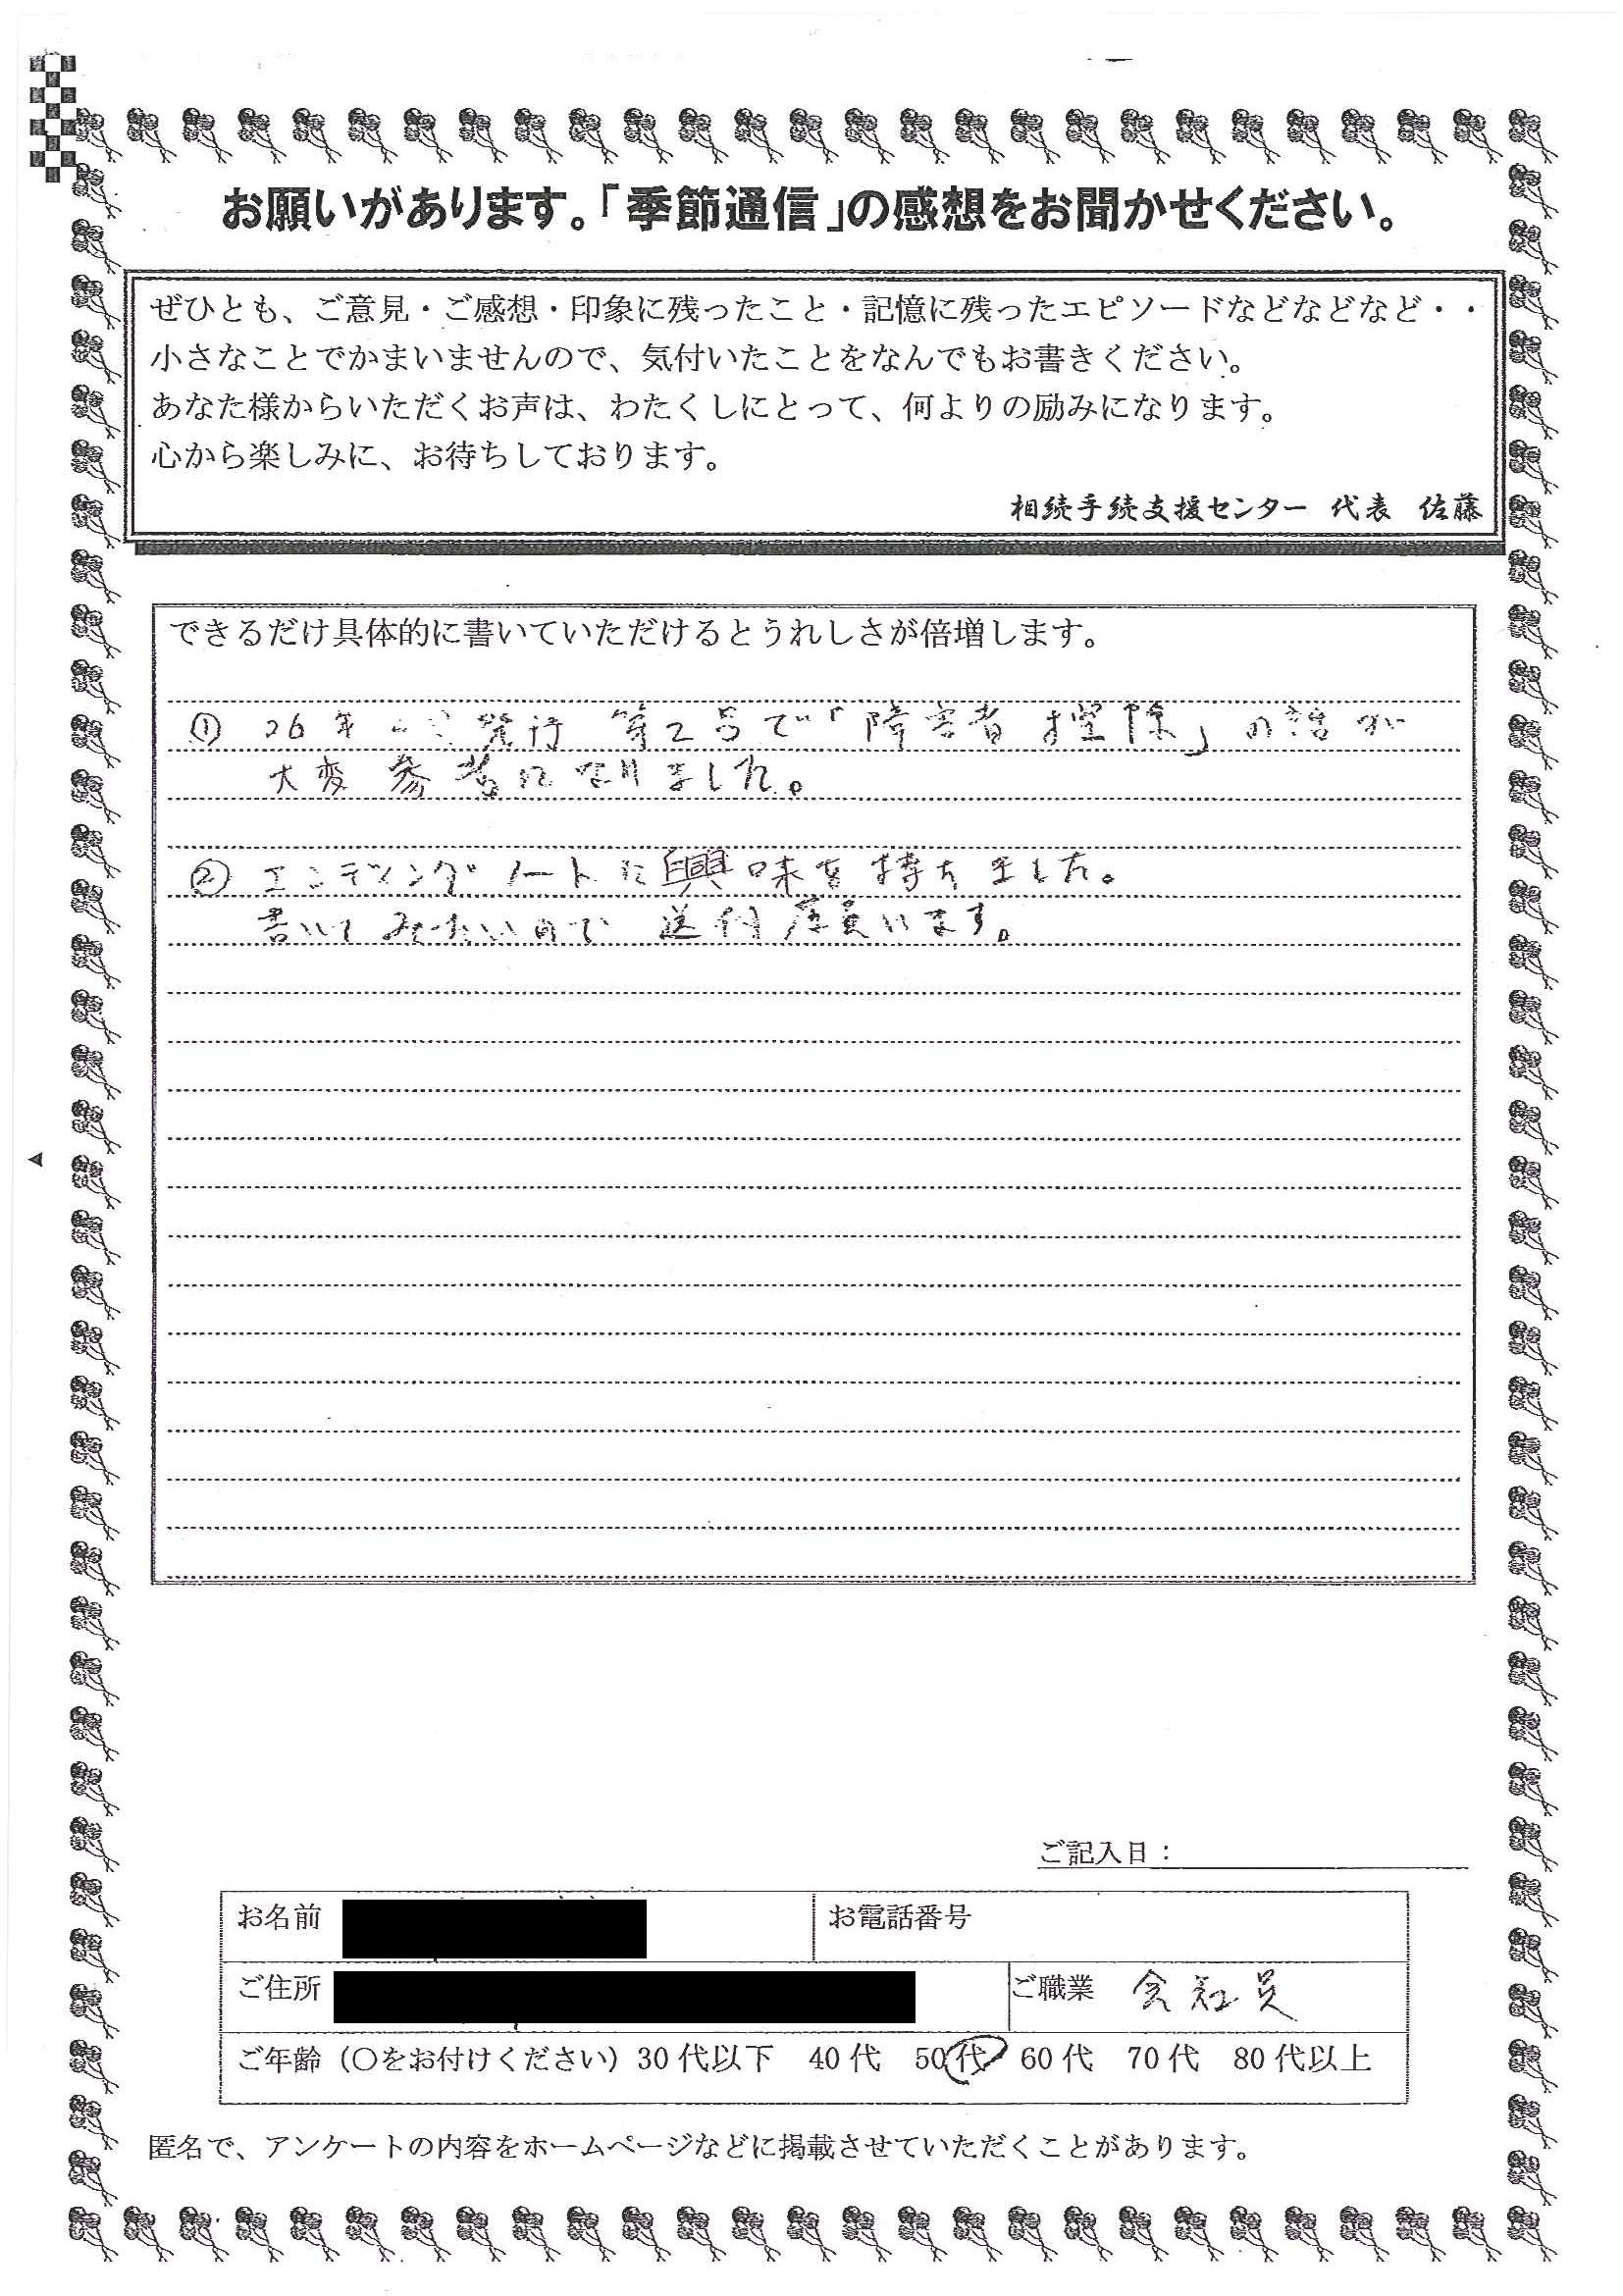 お願いがあります。「季節通信」の感想をお聞かせください。
ぜひとも、ご意見・ご感想・印象に残ったこと・記憶に残ったエピソードなどなどなど・・
小さなことでかまいませんので、気付いたことをなんでもお書きください。
あなた様からいただくお声は、わたくしにとって、何よりの励みになります。
心から楽しみに、お待ちしております。
相続手続支援センター 代表 佐藤
できるだけ具体的に書いていただけるとうれしさが倍増します。
① 26年 発行 第2号で「障害者控除」の話が
大変参考になりました。
② エンデングノートに興味を持ちました。
書いてみたいので 送付願います。
ご記入日:
お名前
お電話番号
ご住所
ご職業 会社員
ご年齢(○をお付けください)30代以下 40代 50代 60代 70代 80代以上
匿名で、アンケートの内容をホームページなどに掲載させていただくことがあります。